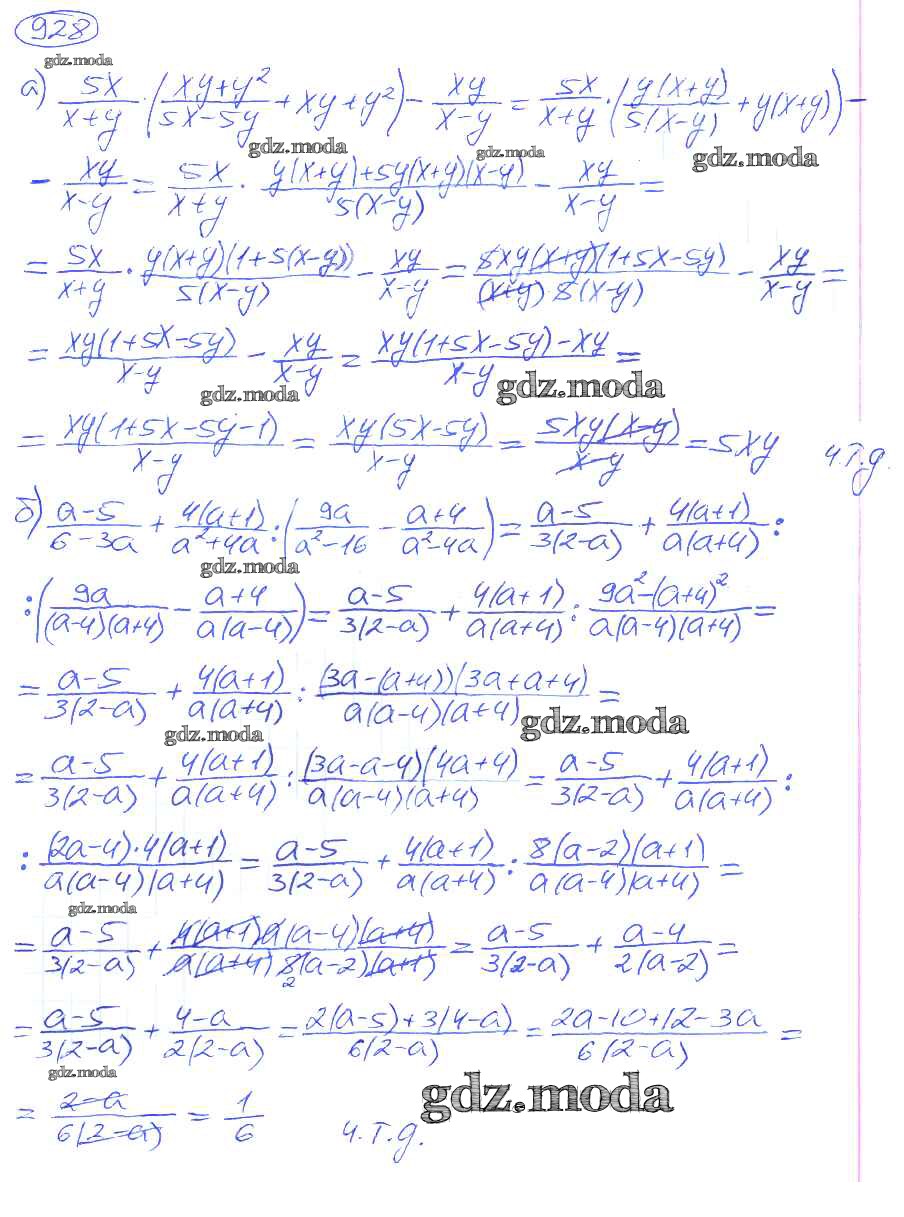 928
gdz.moda
а) 5x/(x+y) · ((xy+y²)/(5x-5y) + xy + y²) - xy/(x-y) = 5x/(x+y) · (y(x+y)/(5(x-y)) + y(x+y)) -
gdz.moda gdz.moda gdz.moda
- xy/(x-y) = 5x/(x+y) · (y(x+y)+5y(x+y)(x-y))/(5(x-y)) - xy/(x-y) =
= 5x/(x+y) · (y(x+y)(1+5(x-y)))/(5(x-y)) - xy/(x-y) = (5xy(x+y)(1+5x-5y))/((x+y)·5(x-y)) - xy/(x-y) =
= (xy(1+5x-5y))/(x-y) - xy/(x-y) = (xy(1+5x-5y)-xy)/(x-y) =
gdz.moda gdz.moda
= (xy(1+5x-5y-1))/(x-y) = (xy(5x-5y))/(x-y) = (5xy(x-y))/(x-y) = 5xy ч.т.д.
б) (a-5)/(6-3a) + (4(a+1))/(a²+4a) : (9a/(a²-16) - (a+4)/(a²-4a)) = (a-5)/(3(2-a)) + (4(a+1))/(a(a+4)) :
gdz.moda
: (9a/((a-4)(a+4)) - (a+4)/(a(a-4))) = (a-5)/(3(2-a)) + (4(a+1))/(a(a+4)) : (9a²-(a+4)²)/(a(a-4)(a+4)) =
= (a-5)/(3(2-a)) + (4(a+1))/(a(a+4)) : ((3a-(a+4))(3a+a+4))/(a(a-4)(a+4)) =
gdz.moda gdz.moda
= (a-5)/(3(2-a)) + (4(a+1))/(a(a+4)) : ((3a-a-4)(4a+4))/(a(a-4)(a+4)) = (a-5)/(3(2-a)) + (4(a+1))/(a(a+4)) :
: ((2a-4)·4(a+1))/(a(a-4)(a+4)) = (a-5)/(3(2-a)) + (4(a+1))/(a(a+4)) : (8(a-2)(a+1))/(a(a-4)(a+4)) =
gdz.moda
= (a-5)/(3(2-a)) + (4(a+1)a(a-4)(a+4))/(a(a+4)8(a-2)(a+1)) = (a-5)/(3(2-a)) + (a-4)/(2(a-2)) =
2
= (a-5)/(3(2-a)) + (4-a)/(2(2-a)) = (2(a-5)+3(4-a))/(6(2-a)) = (2a-10+12-3a)/(6(2-a)) =
gdz.moda gdz.moda
= (2-a)/(6(2-a)) = 1/6 ч.т.д.